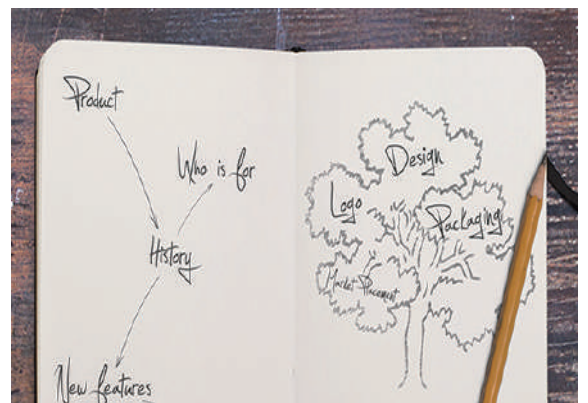 Product
Who is for
History
New features
Design
Logo
Packaging
Market Placement